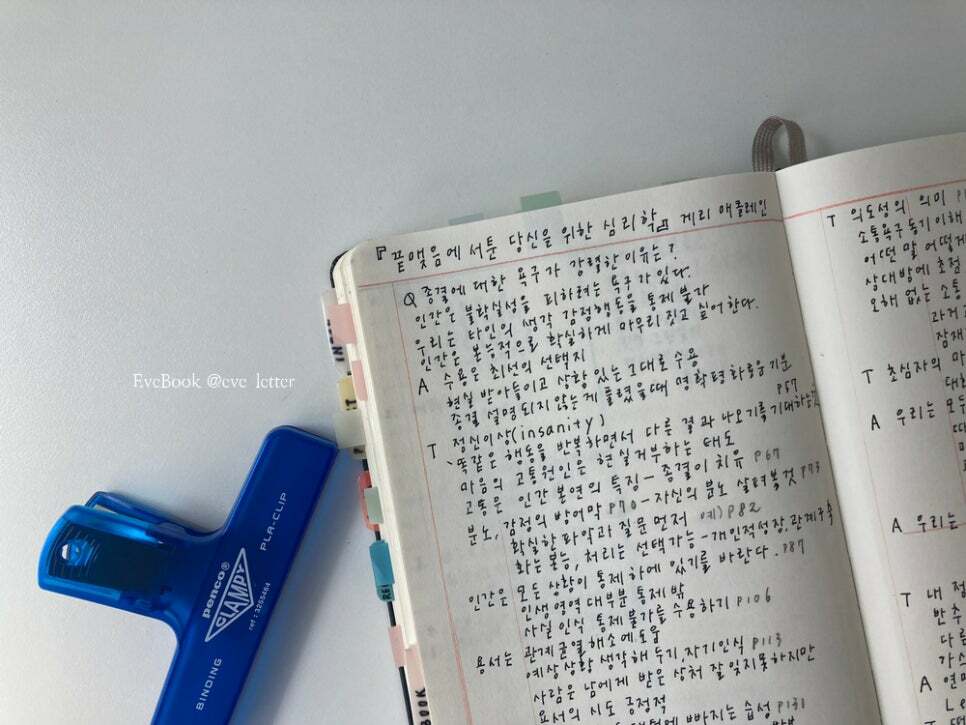 『끝맺음에 서툰 당신을 위한 심리학』 게리 매클레인
Q 종결에 대한 욕구가 강렬한 이유는?
인간은 불확실성을 피하려는 욕구가 있다.
우리는 타인의 생각 감정행동을 통제 불가
인간은 본능적으로 확실하게 마무리 짓고 싶어한다.
A 수용은 최선의 선택지
현실 받아들이고 상황 있는 그대로 수용
종결 설명 되지 않는게 플렸을때 명확 평하
P57
T 정신이상(insanity)
똑같은 행동을 반복하면서 다른 결과 나오기를 기대하는것
마음의 고통원인은 현실거부하는 태도
고통은 인간 본연의 특징-종결이 치유 P67
분노, 감정의 방어막 P70-자신의 분노 살펴볼것 P73
확실한 파악과 질문 먼저 예) P82
화는 본능, 처리는 선택가능-개인적성장, 관계구축
인간은 모든 상황이 통제 하에 있기를 바란다. P87
인생영역 대부분 통제 밖
사실 인식 통제불가를 수용하기 P106
용서는 관계균열해소에 도움
예상상황 생각해 두기 자기인식 P113
사람은 남에게 받은 상처 잘 잊지못하지만
용서의 시도 긍정적
에 빠지는 습성 P131
T 의도성의 의미
소통욕구 동기 이해
어떤 말 어떻게
상대방에 초점
오해 없는 소통
과거
잠재
T 초심자의 마
대
A 우리는 모두
때
A 우리는
T 내 점
반추
다른
가스
A 연민
Le
EvcBook @cvc_letter
penco
CLAMPY
ref : 3255464
PLA-CLIP
BINDING
BOOK